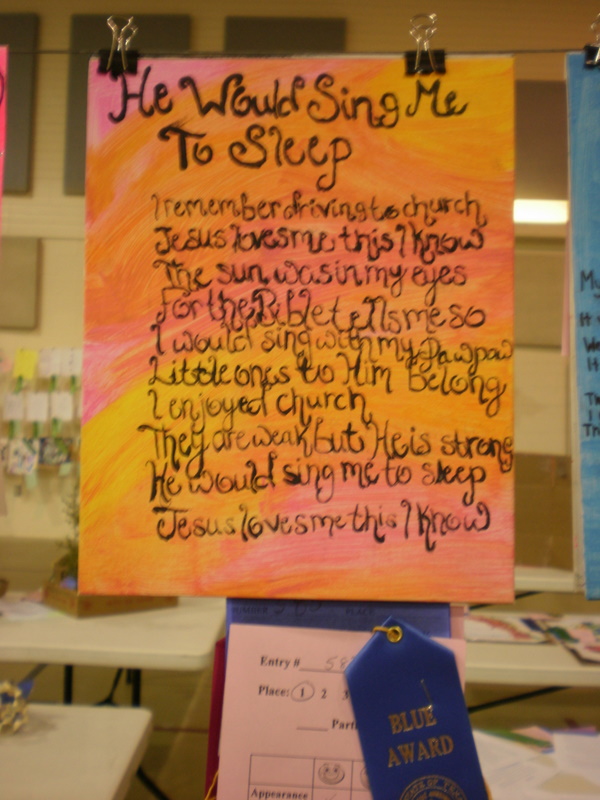 He Would Sing Me
To Sleep
I remember driving to church
Jesus loves me this I know
The sun was in my eyes
For the Bible tells me so
I would sing with my Pawpaw
Little ones to Him belong
I enjoyed church
They are weak but He is strong
He would sing me to sleep
Jesus loves me this I know
Entry # 58
Place: 1 2
Appearance
BLUE
AWARD